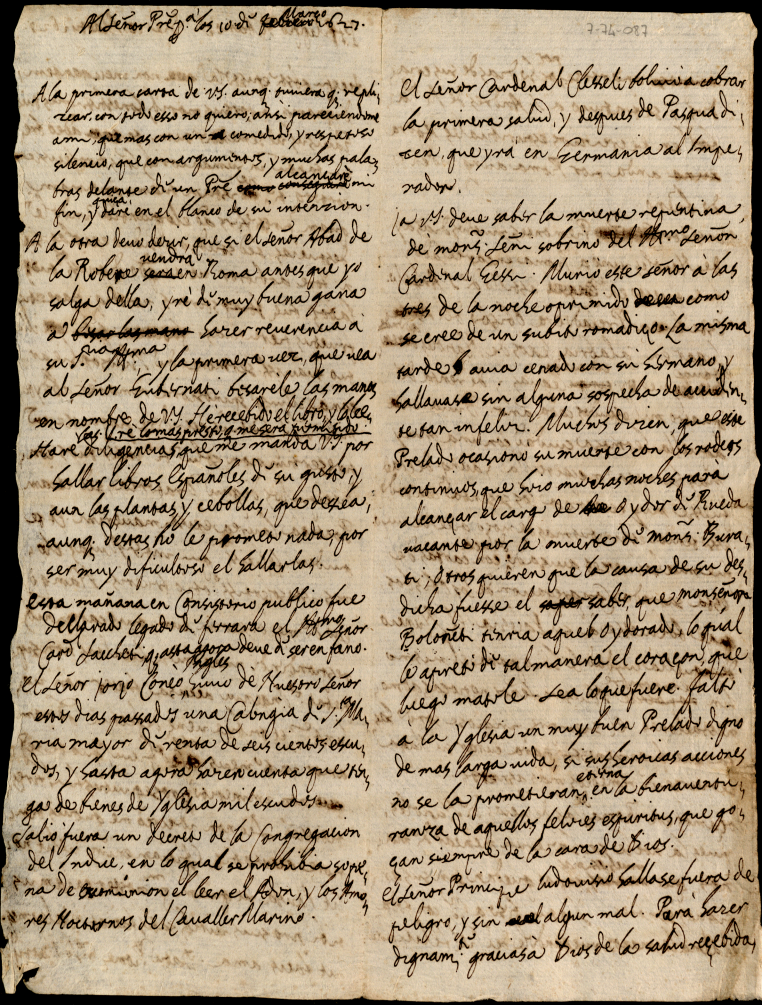 Al Señor Pre.p.a los 10 di febrero Março 1627.
7-74-087
A la primera carta de V.S. aunq. tuviera q. repli,
car, con todo esso no quiero, ansi pareciendome
a mi, que mas con un comedido, y respetoso
silencio, que con argumentos, y muchas pala,
bras delante di un Pre como conseguire alcançare mi
fin, y daré en el blanco de su intenzion.
A la otra devo dezir, que si el señor Abad de
la Robere sera vendra en Roma antes que yo
salga della, yré di muy buena gana
a besar las mano hazer reverencia à
su S. Illma, y la primera vez, que vea
al señor Gubernati besarele las manos
en nombre de V.S. He recebido el libro, y la lee,
ré lo mas presto, q. me será permitido.
Haré diligencias, que me manda V.S. por
hallar libros Españoles di su gusto, y
aun las plantas y cebollas, que dessea,
aunq. destas no le prometo nada, por
ser muy dificultoso el hallarlas.
Esta mañana en Consistorio publico fue
dellarado legado di ferrara el Illmo Señor
Card. Sacchet. q. asta agora deve di ser en fano.
El señor Jorjo Coneo Ingles huvo de Nuestro señor
estos dias passados una Calongia di S.ta Ma,
ria mayor di renta de seis cientos escu,
dos, y hasta agora hazen cuenta que ten,
ga de bienes de Yglesia mil escudos.
Salio fuera un decreto de la Congregacion
del Indice, en lo qual se prohibia so pe,
na de comunion el leer el Adon, y los Amo,
res Nocturnos del Cavaller Marino.
El señor Cardenal Clesseli bolvia a cobrar
la primera salud, y despues de Pasqua di,
cen, que yrá en Germania al Impe,
rador.
Ya V.S. deve saber la muerte repentina
de mons. Leni sobrino del Illmo Señor
Cardinal Gessi. Murio este señor à las
tres de la noche oprimido como
se cree de un subito romadiço. La misma
tarde avia cenado con su hermano, y
hallavase sin alguna sospecha de acciden,
te tan infeliz. Muchos dizen, que este
Prelado ocasiono su muerte con los rodeos
continuos, que hizo muchas noches para
alcançar el cargo de Oydor di Rueda
vacante por la muerte di mons. Bura,
ti; otros quieren que la causa de su des,
dicha fuesse el saber, que monseñor
Boloñeti tenria aquel Oydorado, lo qual
le apreto di tal manera el coraçon, que
luego matole. Sea lo que fuere. faltò
à la Yglesia un muy buen Prelado digno
de mas larga vida, si sus heroicas acciones
no se la prometieran eterna en la bienaventu,
ranza de aquellos felices espiritus, que go,
çan siempre de la cara de Dios.
El señor Principe Ludovisio hallase fuera de
peligro, y sin algun mal. Parà hazer
dignam.te gracias a Dios de la salud recebida,